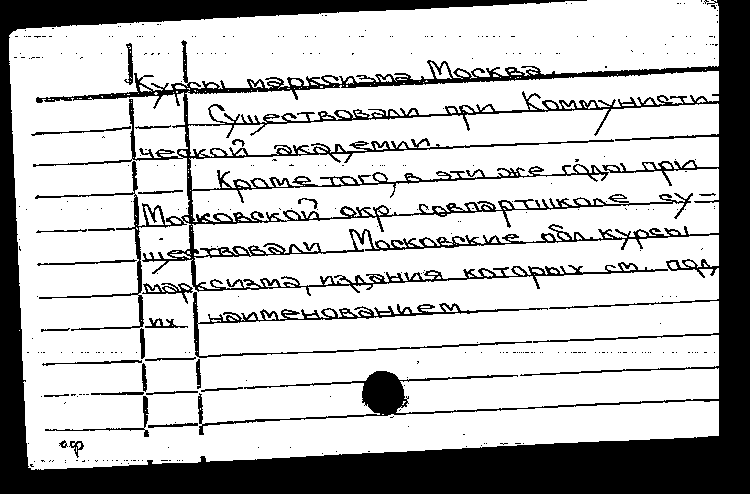 Курсы марксизма. Москва.
Существовали при Коммунисти-
ческой академии.
Кроме того, в эти же годы при
Московской окр. совпартшколе су-
ществовали Московские обл. курсы
марксизма, издания которых см. под
их наименованием.